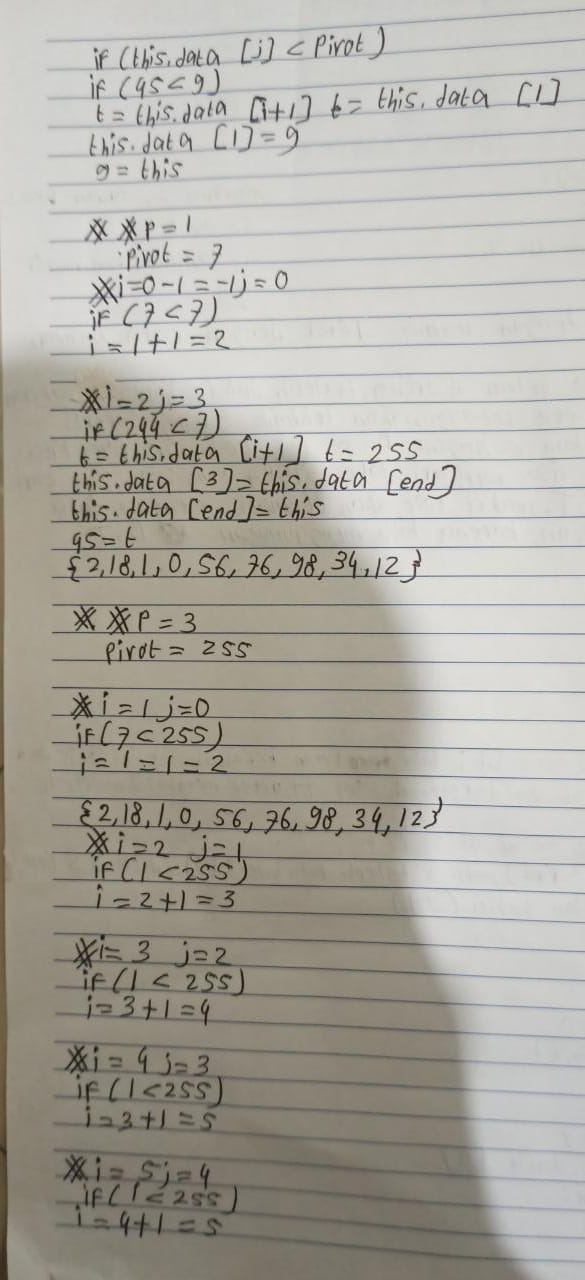 if (this.data [j] < Pivot)
if (95<9)
t = this.data [i+1] t = this.data [1]
this.data [1] = 9
9 = this
** P = 1
Pivot = 7
* i=0-1=-1 j=0
if (7<7)
i = 1+1=2
* i=2 j=3
if(244<7)
t = this.data [i+1] t = 255
this.data [3]=this.data [end]
this.data [end]=this
95=t
{2,18,1,0,56,76,98,34,12}
** P = 3
Pivot = 255
* i=1 j=0
if(7<255)
i=1=1=2
{2,18,1,0,56,76,98,34,12}
* i=2 j=1
if(1<255)
i=2+1=3
* i=3 j=2
if(1<255)
i=3+1=4
* i=4 j=3
if(1<255)
i=3+1=5
* i=5 j=4
if(1<255)
i=4+1=5